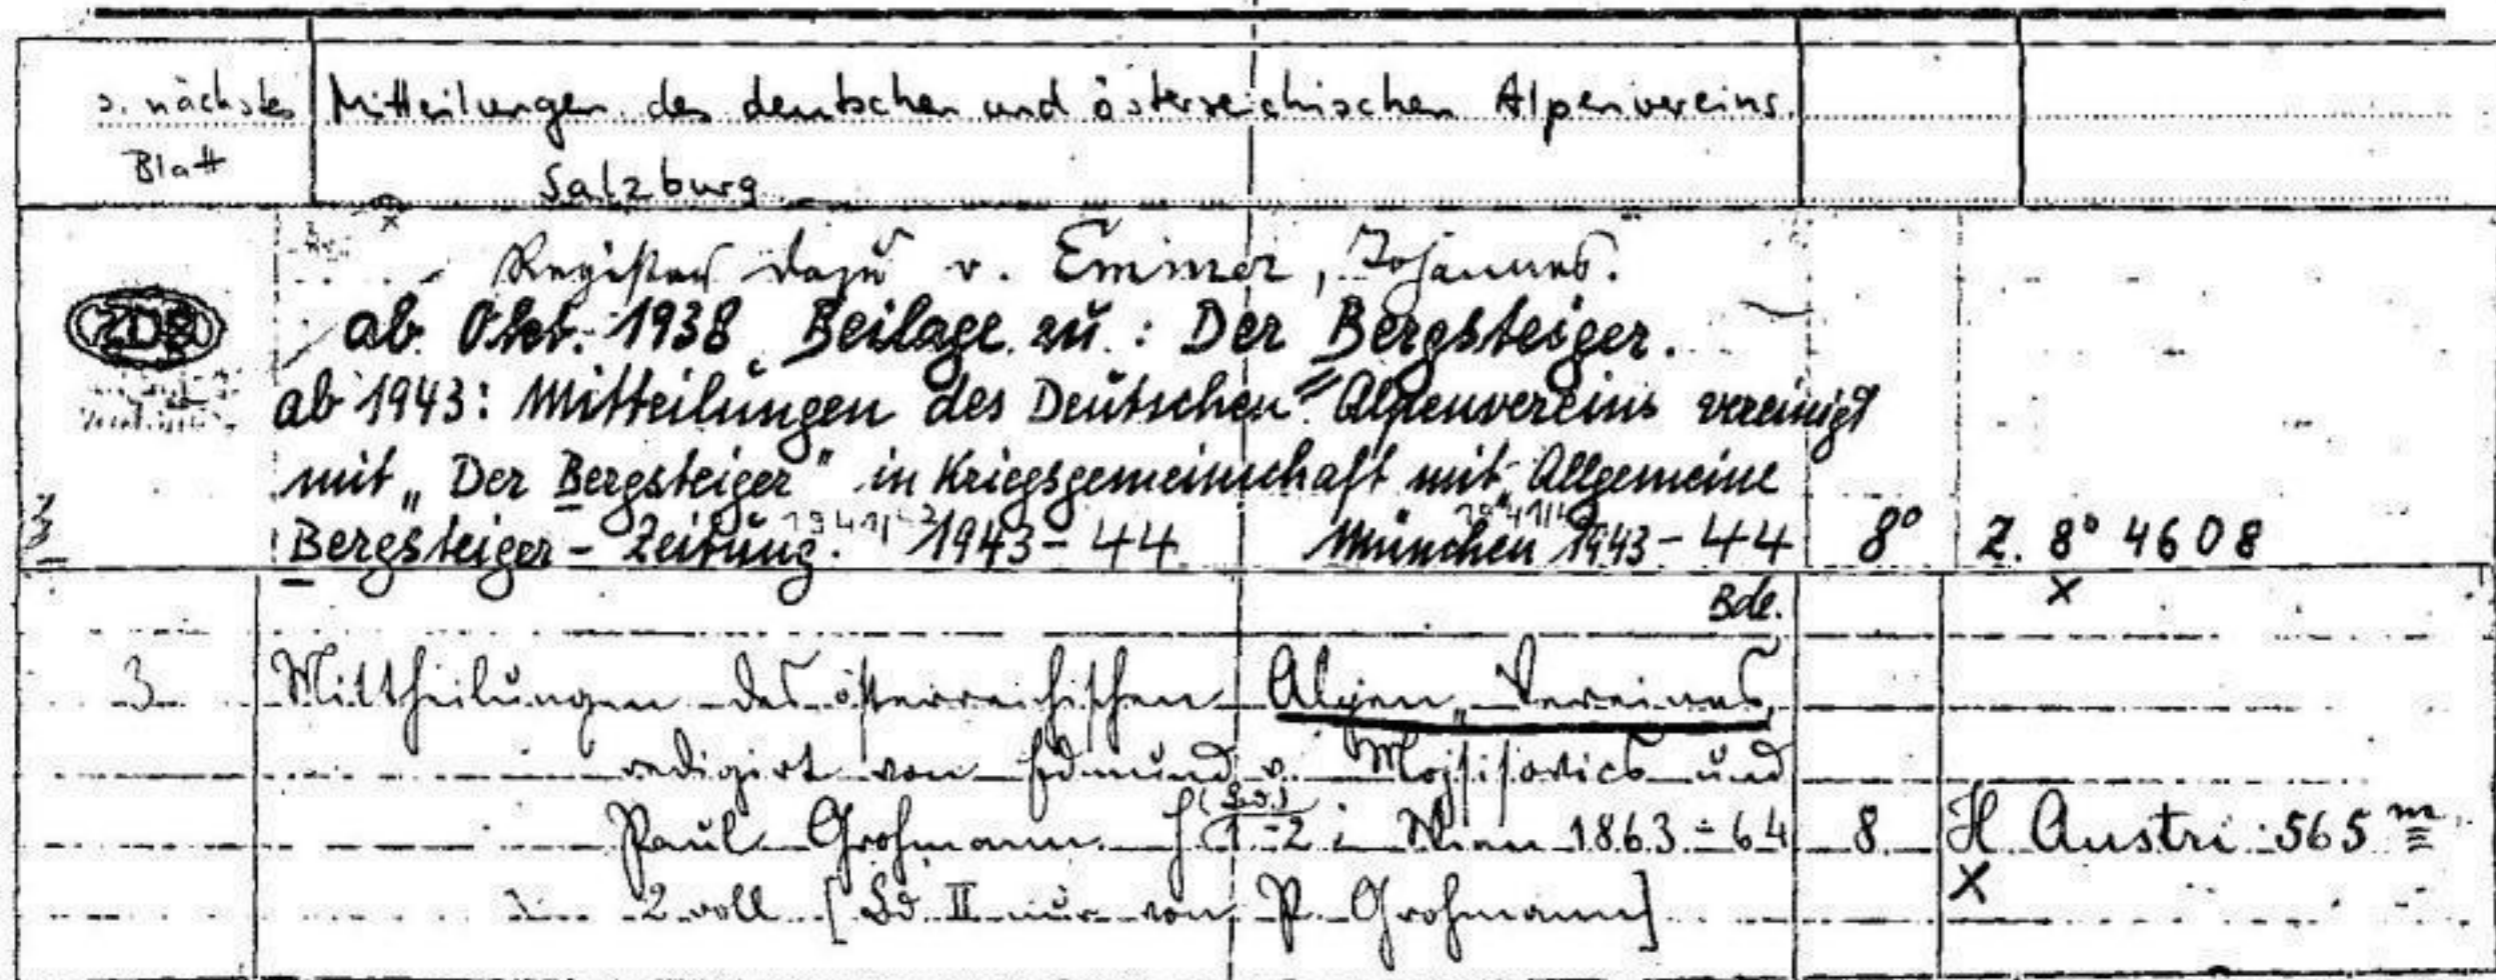 s. nächstes Mitteilungen des deutschen und österreichischen Alpenvereins.
Blatt Salzburg
Register dazu v. Emmer, Johannes.
ZDB ab Okt. 1938 Beilage zu: Der Bergsteiger.
ab 1943: Mitteilungen des Deutschen Alpenvereins vereinigt
mit „Der Bergsteiger" in Kriegsgemeinschaft mit Allgemeine
Bergsteiger-Zeitung. 1943-44 München 1943-44 8° Z. 8° 4608
Bde. x
3 Mittheilungen des österreichischen Alpen-Vereines,
redigirt von Edmund v. Mojsisovics und
Paul Grohmann (Bd.) 1-2 Wien 1863-64 8 H Austri 565 m
2 voll [Bd II nur von P Grohmann] X